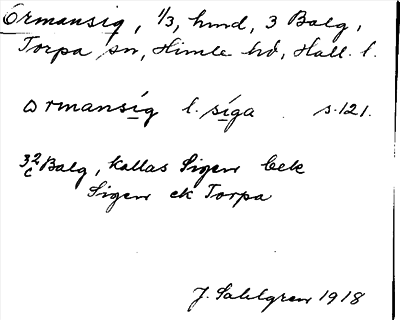 Ormansig, 1/3, hmd, 3 Balg,
Torpa sn, Himle hd, Hall. l.
ɷrmansíg l. síga s. 121.
32 Balg, kallas Sigen bek
c Sigen ek Torpa
J. Sahlgren 1918